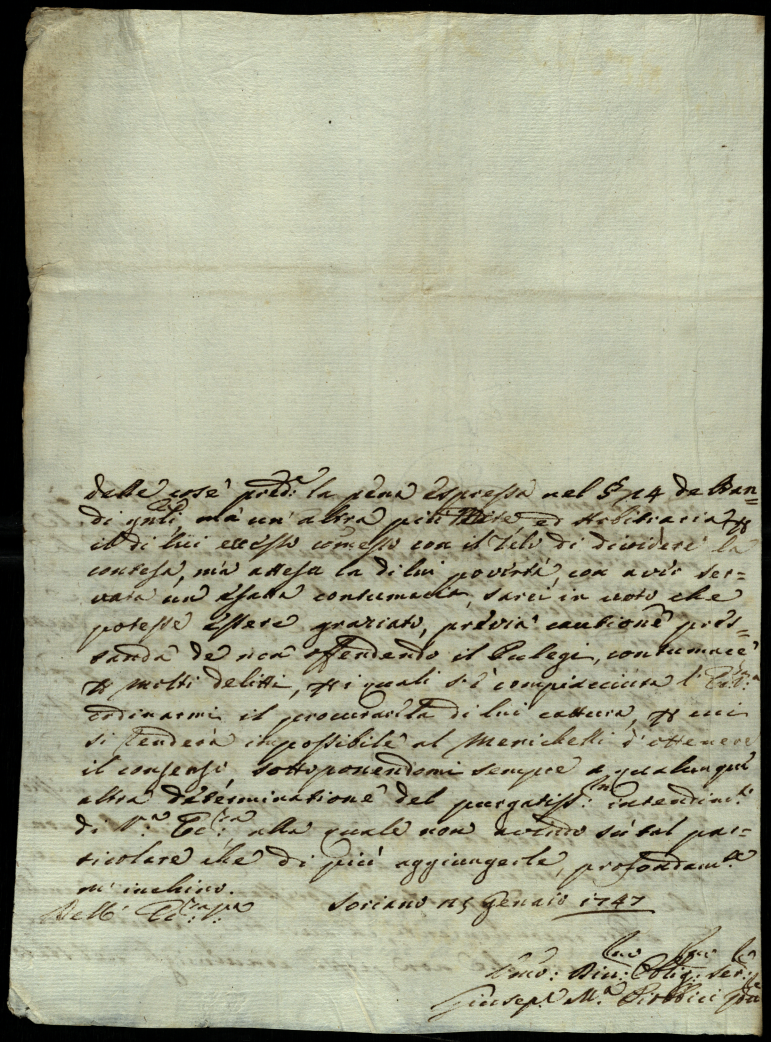 delle cose pred:e la pena espressa nel § 74 de Ban=
di gnli, mà un' altra più Mite ed Arbitraria p
il di lui eccesso comesso con il Zelo di dividere la
contesa, mà attesa la di lui povertà, con aver ser=
vata un' esatta contumacia, sarei in voto che
potesse essere graziato, previa cautione pres=
tanda de non offendendo il Pulegi, contumace
p molti delitti, p i quali si è compiacciuta l'
ordinarmi il procurar la di lui cattura, p cui
si renderà impossibile al Menichetti d' ottenere
il consenso, sottoponendomi sempre a qualunque
altra determinatione del purgatiss:mo intendim:to
di V:a Ecc:za alla quale non avendo sù tal par=
ticolare che di più aggiungerle, profondam:te
m' inchino.
Dell' Ecc:za V:a Soriano 15 Gennaio 1747
Um̃o: Div:mo Oblig:mo Ser:re
Giusepe M:a